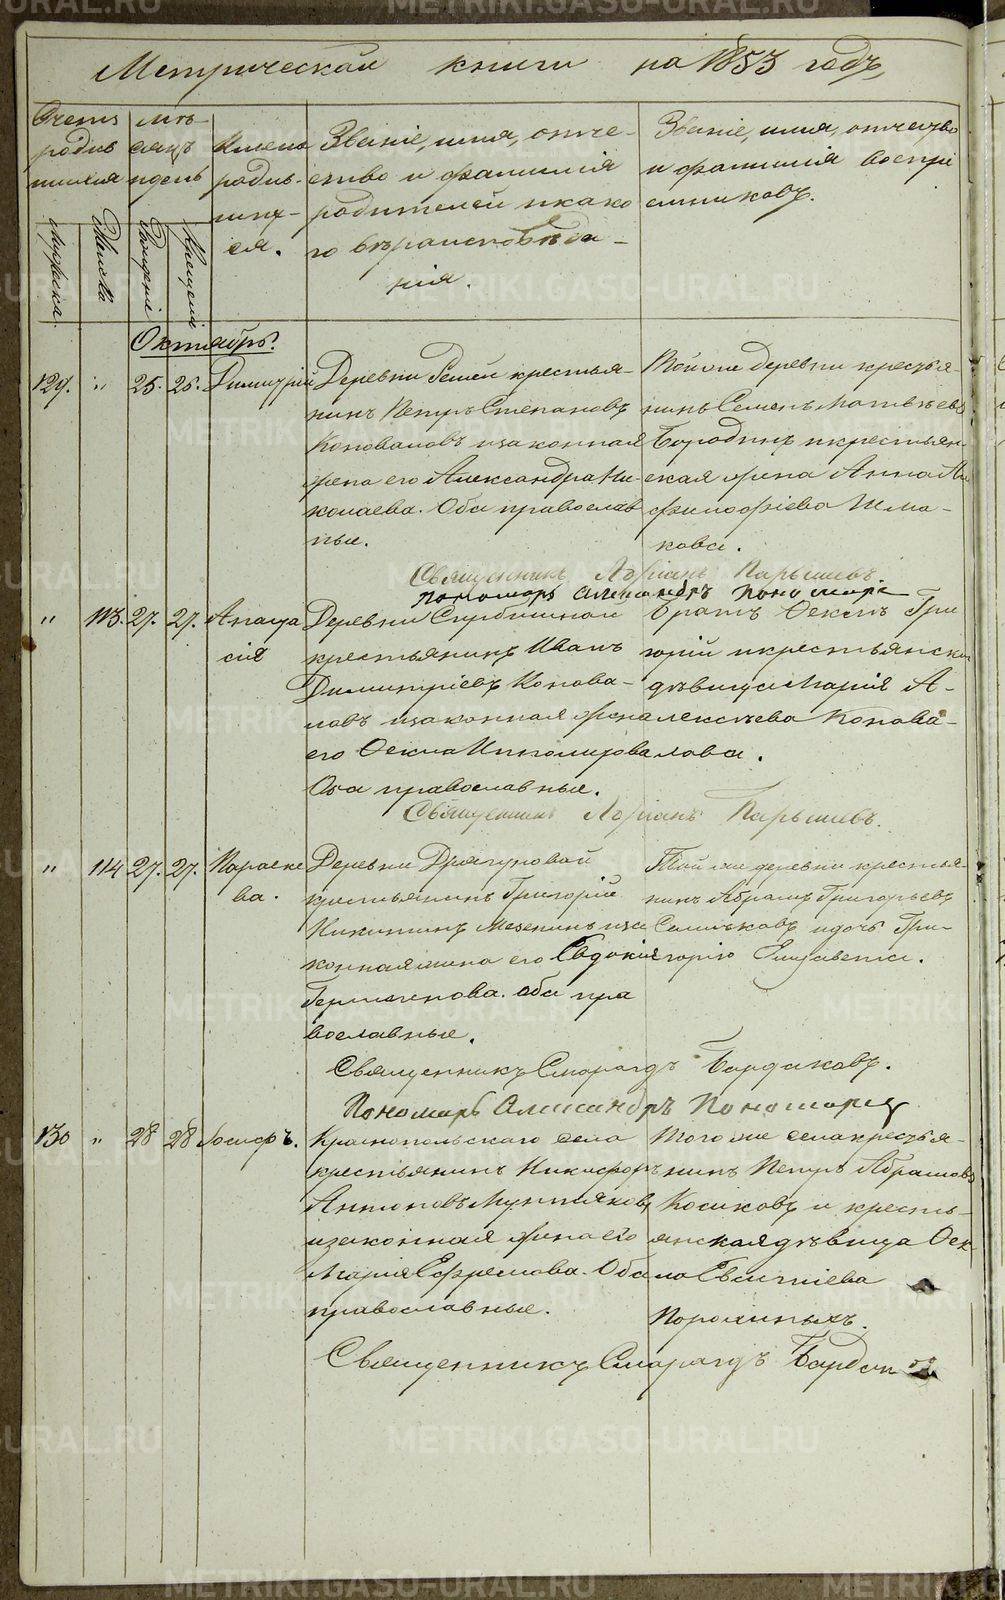 Метрической книги на 1853 годъ,
Счетъ родившихся
Мѣсяцъ и день
Имена родившихся.
Званіе, имя, отчество и фамилія родителей и какого вѣроисповѣданія.
Званіе, имя, отчество и фамилія воспріемниковъ.
Мужеска
Женска
Рожденія
Крещенія
Октябрь.
129. " 25. 25. Димитрій
Деревни крестья-
нинъ Петръ Степановъ
Коноваловъ и законная
жена его Александра Ни-
колаева. Оба православ
ные.
Тойже деревни крестья-
нинъ Семенъ Матвѣевъ
Бородинъ и крестьян-
ская жена Анна
кова.
Священникъ Адріанъ Парышевъ.
Пономарь Александръ Пономаре
" 113. 27. 27. Анаста
сія
Деревни
крестьянинъ Иванъ
Димитріевъ Конова-
ловъ и законная жена
его Фекла
Оба православные.
Братъ Феклы Гри
горій и крестьянска
дѣвица Марія А-
лексѣева Конова-
лова.
Священникъ Адріанъ Парышевъ.
" 114 27. 27. Параске
ва.
Деревни Драгуновой
крестьянинъ Григорій
Никитинъ Мезенинъ и за
конная жена его Евдокія
Герасимова. Оба пра
вославные.
Той же деревни крестья
нинъ Абрамъ Григорьевъ
и дочь Гри-
горію Елизавета.
Священникъ Смарагдъ Бардаковъ.
Пономарь Александръ Пономаревъ
130 " 28 28 Іосифъ.
Краснопольскаго села
крестьянинъ Никифоръ
Антоновъ Мунтяковъ
и законная жена его
Марія Ефремова. Оба
православные.
Того же села крестья-
нинъ Петръ Абрамовъ
Косиковъ и кресть-
янская дѣвица Фек-
ла Евсигніева
Порошиныхъ.
Священникъ Смарагдъ Бардаковъ
METRIKI.GASO-URAL.RU